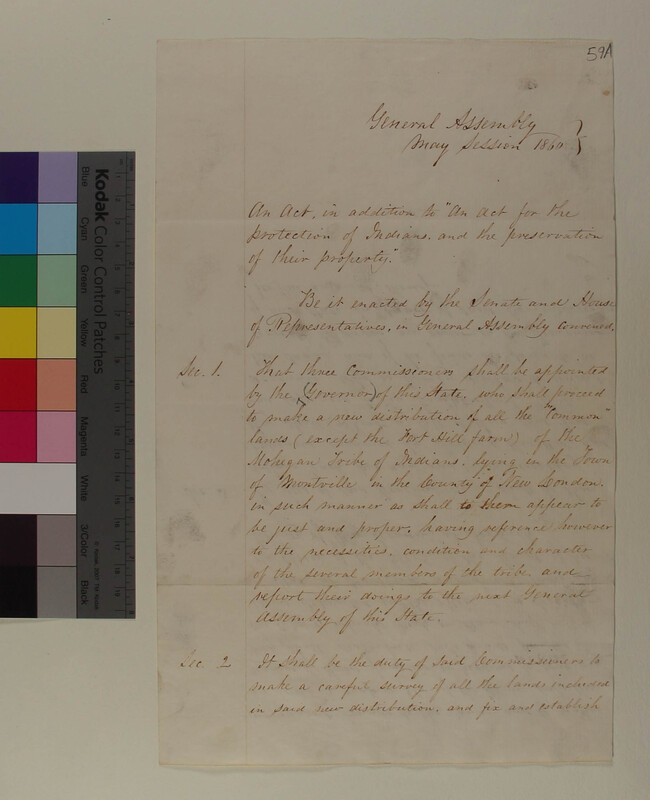 59A
General Assembly
May Session 1860
An Act, in addition to "An act for the
protection of Indians, and the preservation
of their property."
Be it enacted by the Senate and House
of Representatives, in General Assembly convened.
Sec. 1. That three Commissioners shall be appointed
by the (Governor) of this State, who shall proceed
to make a new distribution of all the "Common"
lands (except the Fort Hill farm) of the
Mohegan Tribe of Indians, lying in the Town
of Montville in the County of New London,
in such manner as shall to them appear to
be just and proper, having reference however
to the necessities, condition and character
of the several members of the tribe, and
report their doings to the next General
Assembly of this State.
Sec. 2 It shall be the duty of said Commissioners to
make a careful survey of all the lands included
in said new distribution, and fix and establish
Kodak Color Control Patches
Blue
Cyan
Green
Yellow
Red
Magenta
White
3/Color
Black